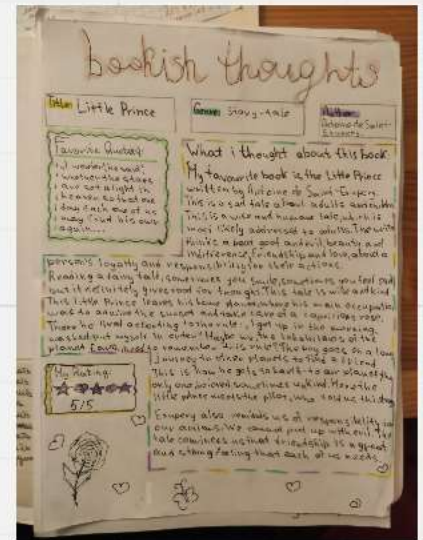 bookish thoughts
Title: Little Prince
Genre: story-tale
Author:
Antoine de Saint-
Exupery
Favorite Quotes:
"I wonder," he said"
whether the stars
are set alight in
heaven so that one
day each one of us
may find his own
again...
What i thought about this book:
My favourite book is the Little Prince
written by Antoine de Saint-Exupery.
This is a sad tale about adults and
This is a wise and humane tale, which is
most likely addressed to adults. The write
thinks a poet good and evil, beauty and
indifference, friendship and love, about a
person's loyalty and responsibility for their actions.
Reading a fairy tale, sometimes you smile, sometimes you feel sad
but it definitely gives food for thought. This tale is wise and kind
This little Prince leaves his home planet, where his main occupation
was to admire the sunset and take care of a capricious rose.
There he lived according to the rule: "I get up in the morning,
washed put myself in order". Maybe we, the inhabitants of the
planet Earth, need to renew this rule? The boy goes on a long
journey to other planets to find a friend
This is how he gets to Earth - to our planet
only one beloved sometimes unkind. Here the
little prince meets the pilot, who told us this
My Rating:
5/5
Exupery also reminds us of responsibility to
our animals. We cannot put up with evil. The
tale convinces us that friendship is a great
and strong feeling that each of us needs.